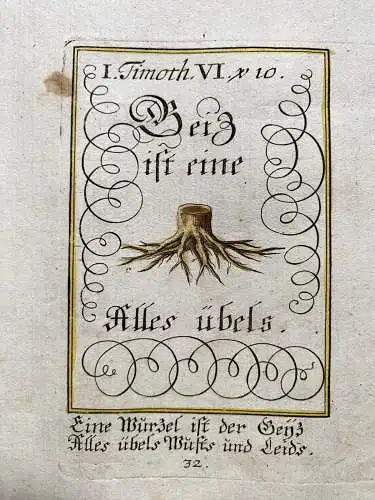 I. Timoth. VI. ℣ 10.
Geiz
ist eine
Alles übels.
Eine Würzel ist der Geÿz
Alles übels Wüsts und Leids.
32.